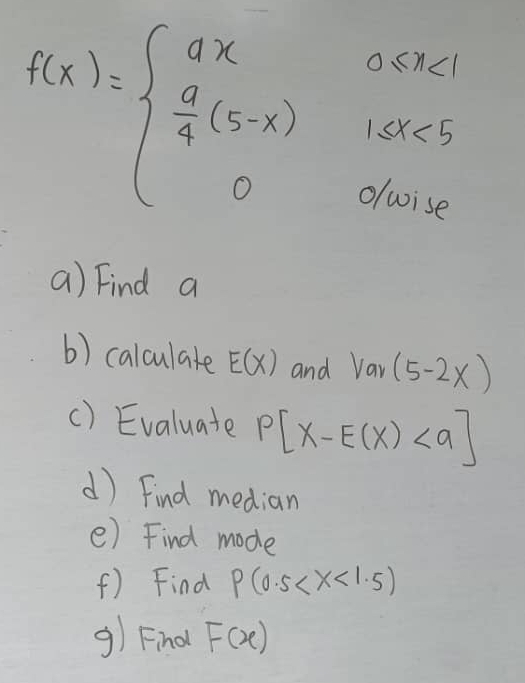 f(x) = { ax 0 ≤ x < 1
a/4 (5-x) 1 ≤ x < 5
0 o/wise
a) Find a
b) calculate E(X) and Var (5-2X)
c) Evaluate P[X-E(X) <a]
d) Find median
e) Find mode
f) Find P(0.5<X<1.5)
g) Find F(x)